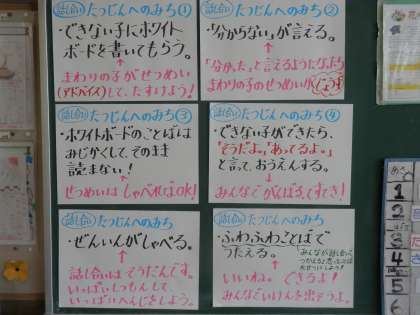 話し合い たつじんへのみち①
・できない子にホワイト
ボードを書いてもらう。
↑
まわりの子がせつめい
(アドバイス)して、たすけよう!
話し合い たつじんへのみち②
・「分からない」が言える。
↑
「分かった」と言えるようになったら
まわりの子のせつめいが
話し合い たつじんへのみち③
・ホワイトボードのことばは
みじかくして、そのまま
読まない!
↑
せつめいは しゃべればOK!
話し合い たつじんへのみち④
・できない子ができたら、
「そうだよ。」「あってるよ。」
と言って、おうえんする。
↑
みんなでがんばる、てすき!
話し合い たつじんへのみち
・ぜんいんがしゃべる。
↑
話し合いは そうだんです。
いっぱいしつもんして
いっぱいへんじをしよう。
話し合い たつじんへのみち
・ふわふわことばで
つたえる。
↑
いいね。できるよ!
みんなでいけんを出そうよ。
1
2
3
4
5